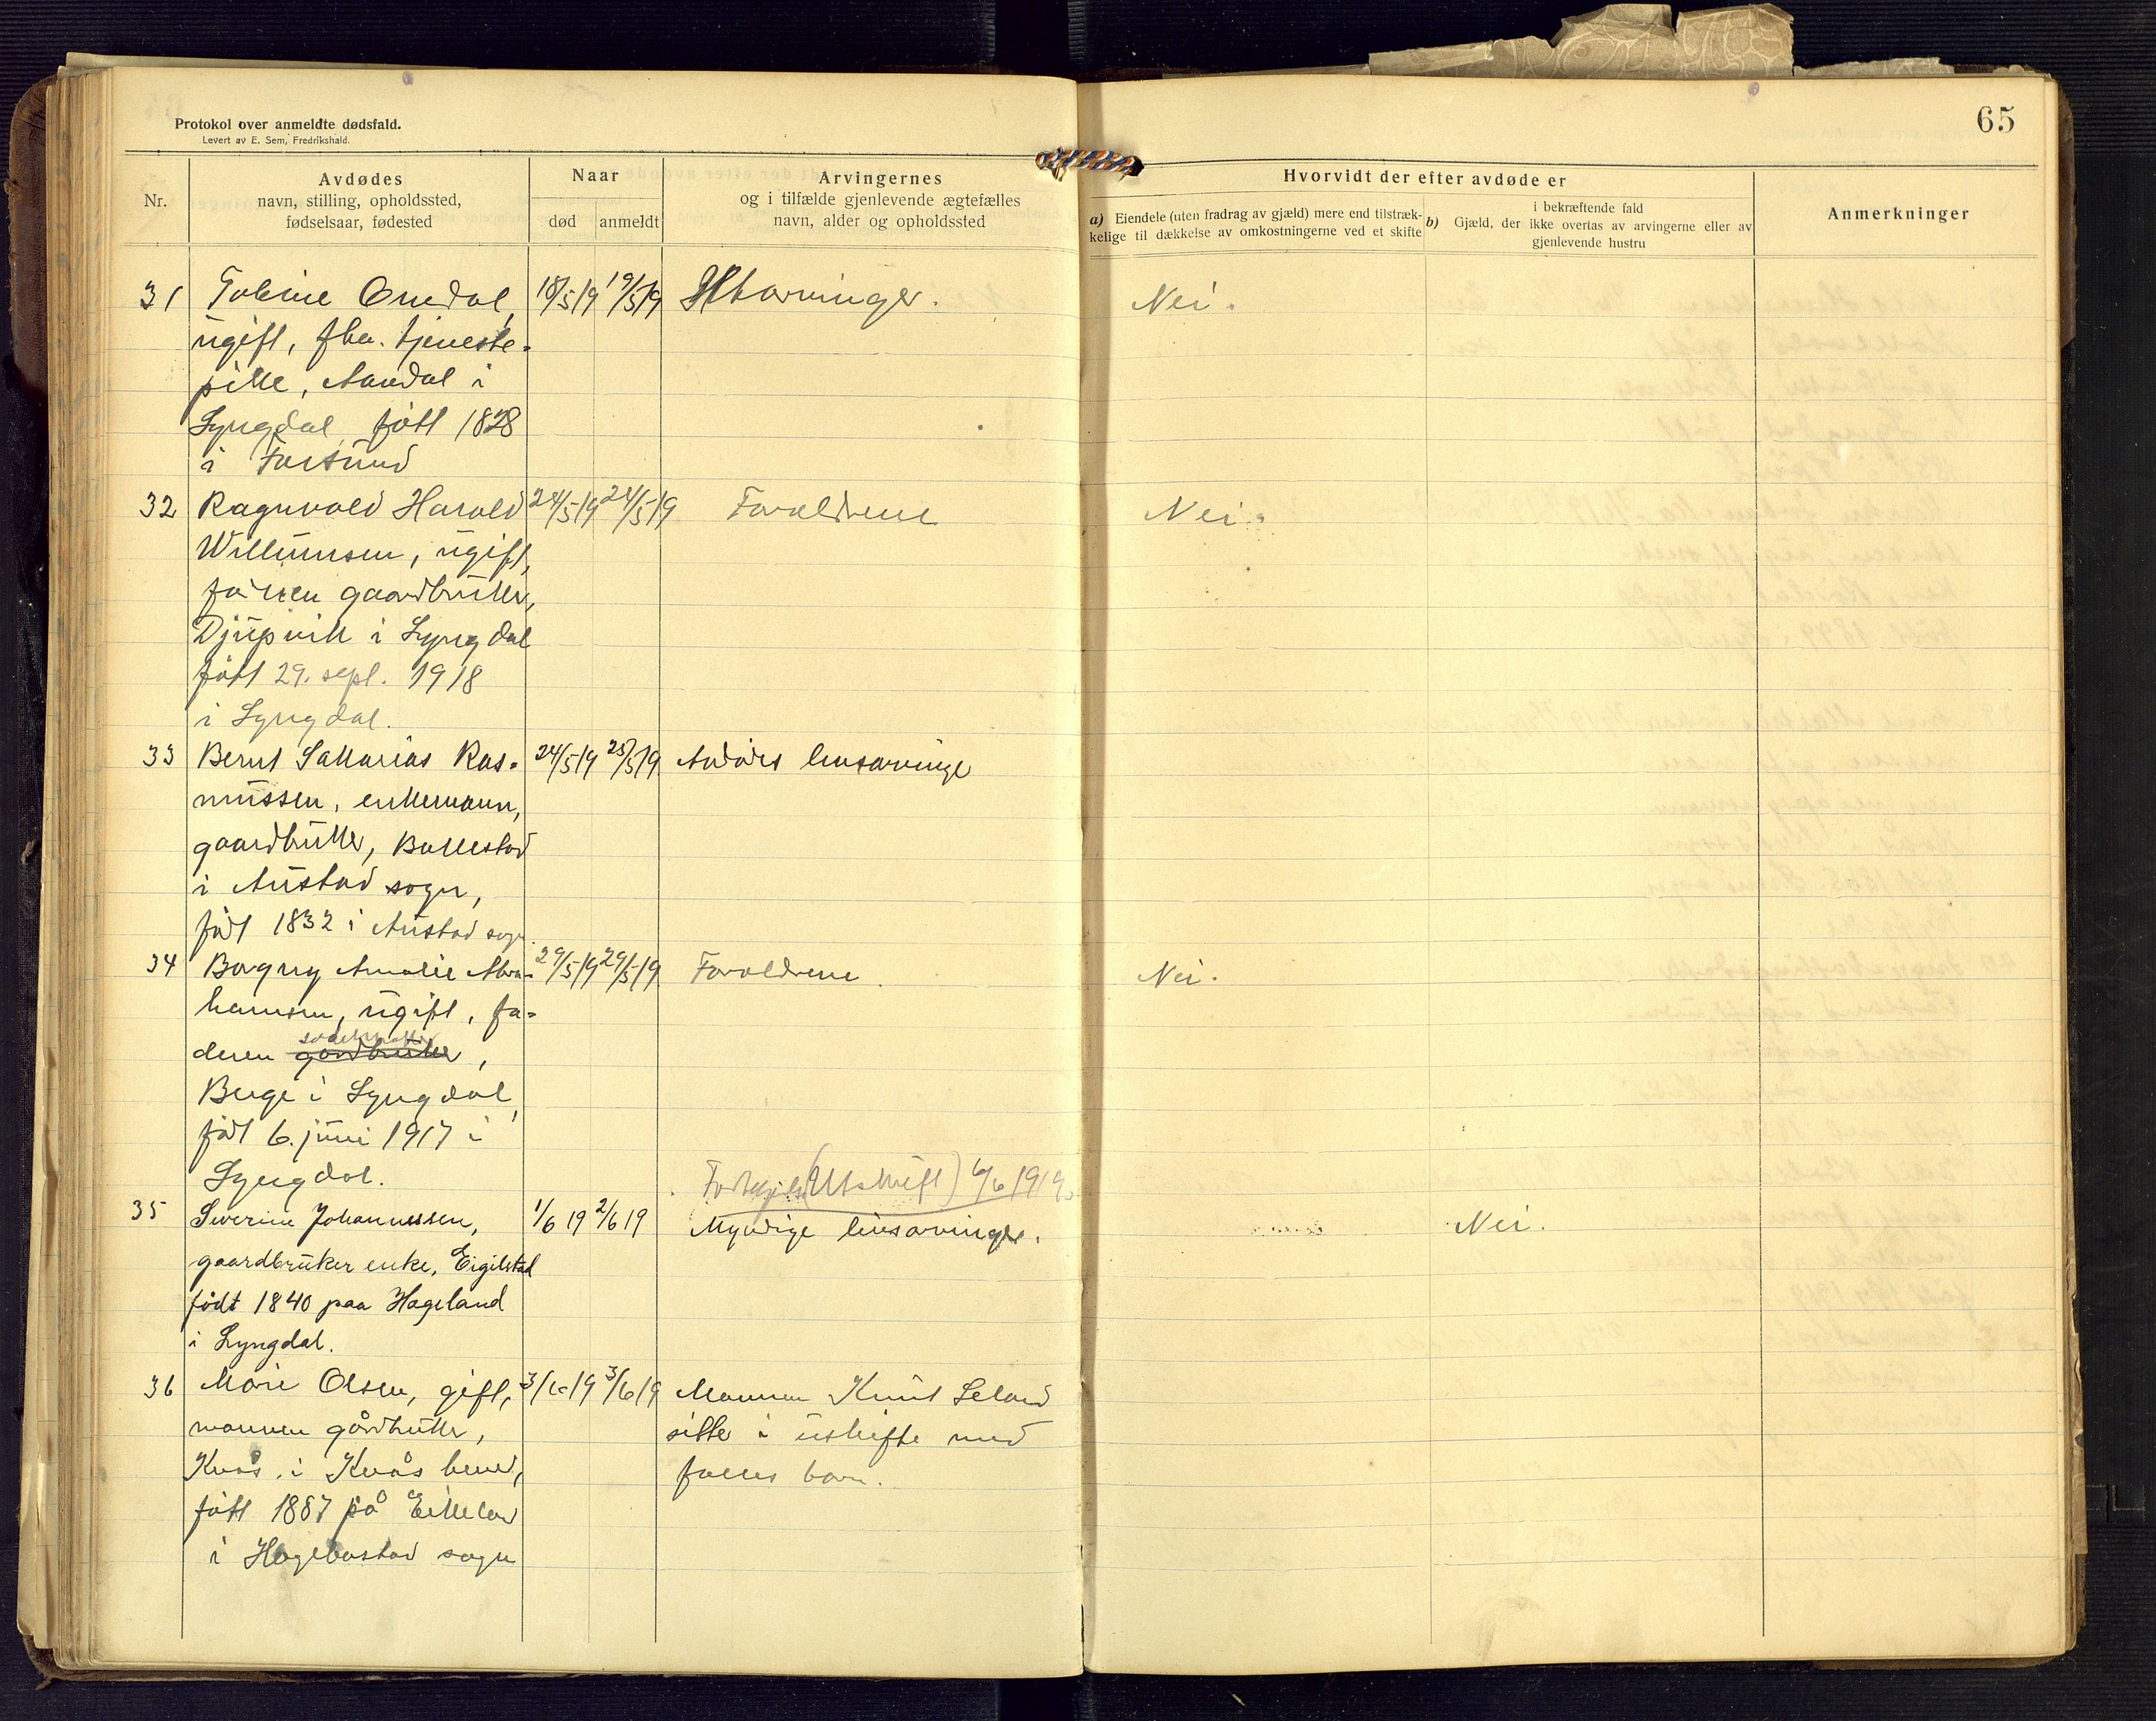 65
Protokol over anmeldte dødsfald.
Levert av E. Sem, Fredrikshald.
Nr.
Avdødes
navn, stilling, opholdssted,
fødselsaar, fødested
Naar
død
anmeldt
Arvingernes
og i tilfælde gjenlevende ægtefælles
navn, alder og opholdssted
Hvorvidt der efter avdøde er
a) Eiendele (uten fradrag av gjæld) mere end tilstræk-
kelige til dækkelse av omkostningerne ved et skifte
i bekræftende fald
b) Gjæld, der ikke overtas av arvingerne eller av
gjenlevende hustru
Anmerkninger
31 Tobine Omdal, 18/5 19 19/5 19 Utarvinger. Nei.
ugift, fhv. tjeneste-
pike, Aamdal i
Lyngdal, født 1828
i Farsund
32 Ragnvald Harald 24/5 19 24/5 19 Forældrene Nei.
Willumsen, ugift,
faren gaardbruker,
Djupvik i Lyngdal
født 29. sept. 1918
i Lyngdal.
33 Bernt Sakarias Ras- 24/5 19 25/5 19 livsarvinge
mussen, enkemann,
gaardbruker, Bakkestad
i Austad sogn,
født 1832 i Austad sogn.
34 Borgny Amalie Abra- 29/5 19 29/5 19 Forældrene. Nei.
hamsen, ugift, fa-
deren gårdbruker,
Berge i Lyngdal,
født 6. juni 1917 i
Lyngdal.
(Utskrift) 6/6 1919.
35 Severine Johannessen, 1/6 19 2/6 19 Myndige livsarvinger. Nei.
gaardbruker enke, Eigilstad
født 1840 paa Hageland
i Lyngdal.
36 Marie Olsen, gift, 3/6 19 3/6 19 Mannen Knut Seland
mannen gårdbruker, sitte i uskifte med
Kvås i Kvås herred, fælles barn.
født 1887 på Eikeland
i Hægebostad sogn